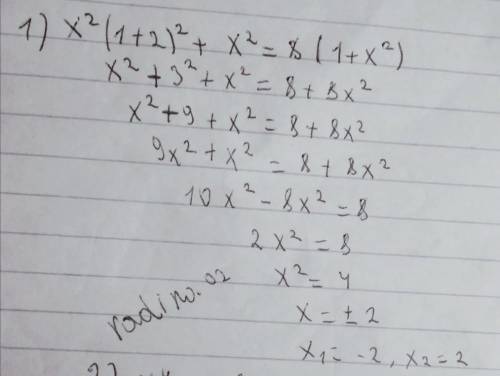 1) x² (1+2)² + x² = 8 (1+x²)
x² + 3² + x² = 8 + 8x²
x² + 9 + x² = 8 + 8x²
9x² + x² = 8 + 8x²
10x² - 8x² = 8
2x² = 8
x² = 4
x = ± 2
x₁ = -2, x₂ = 2